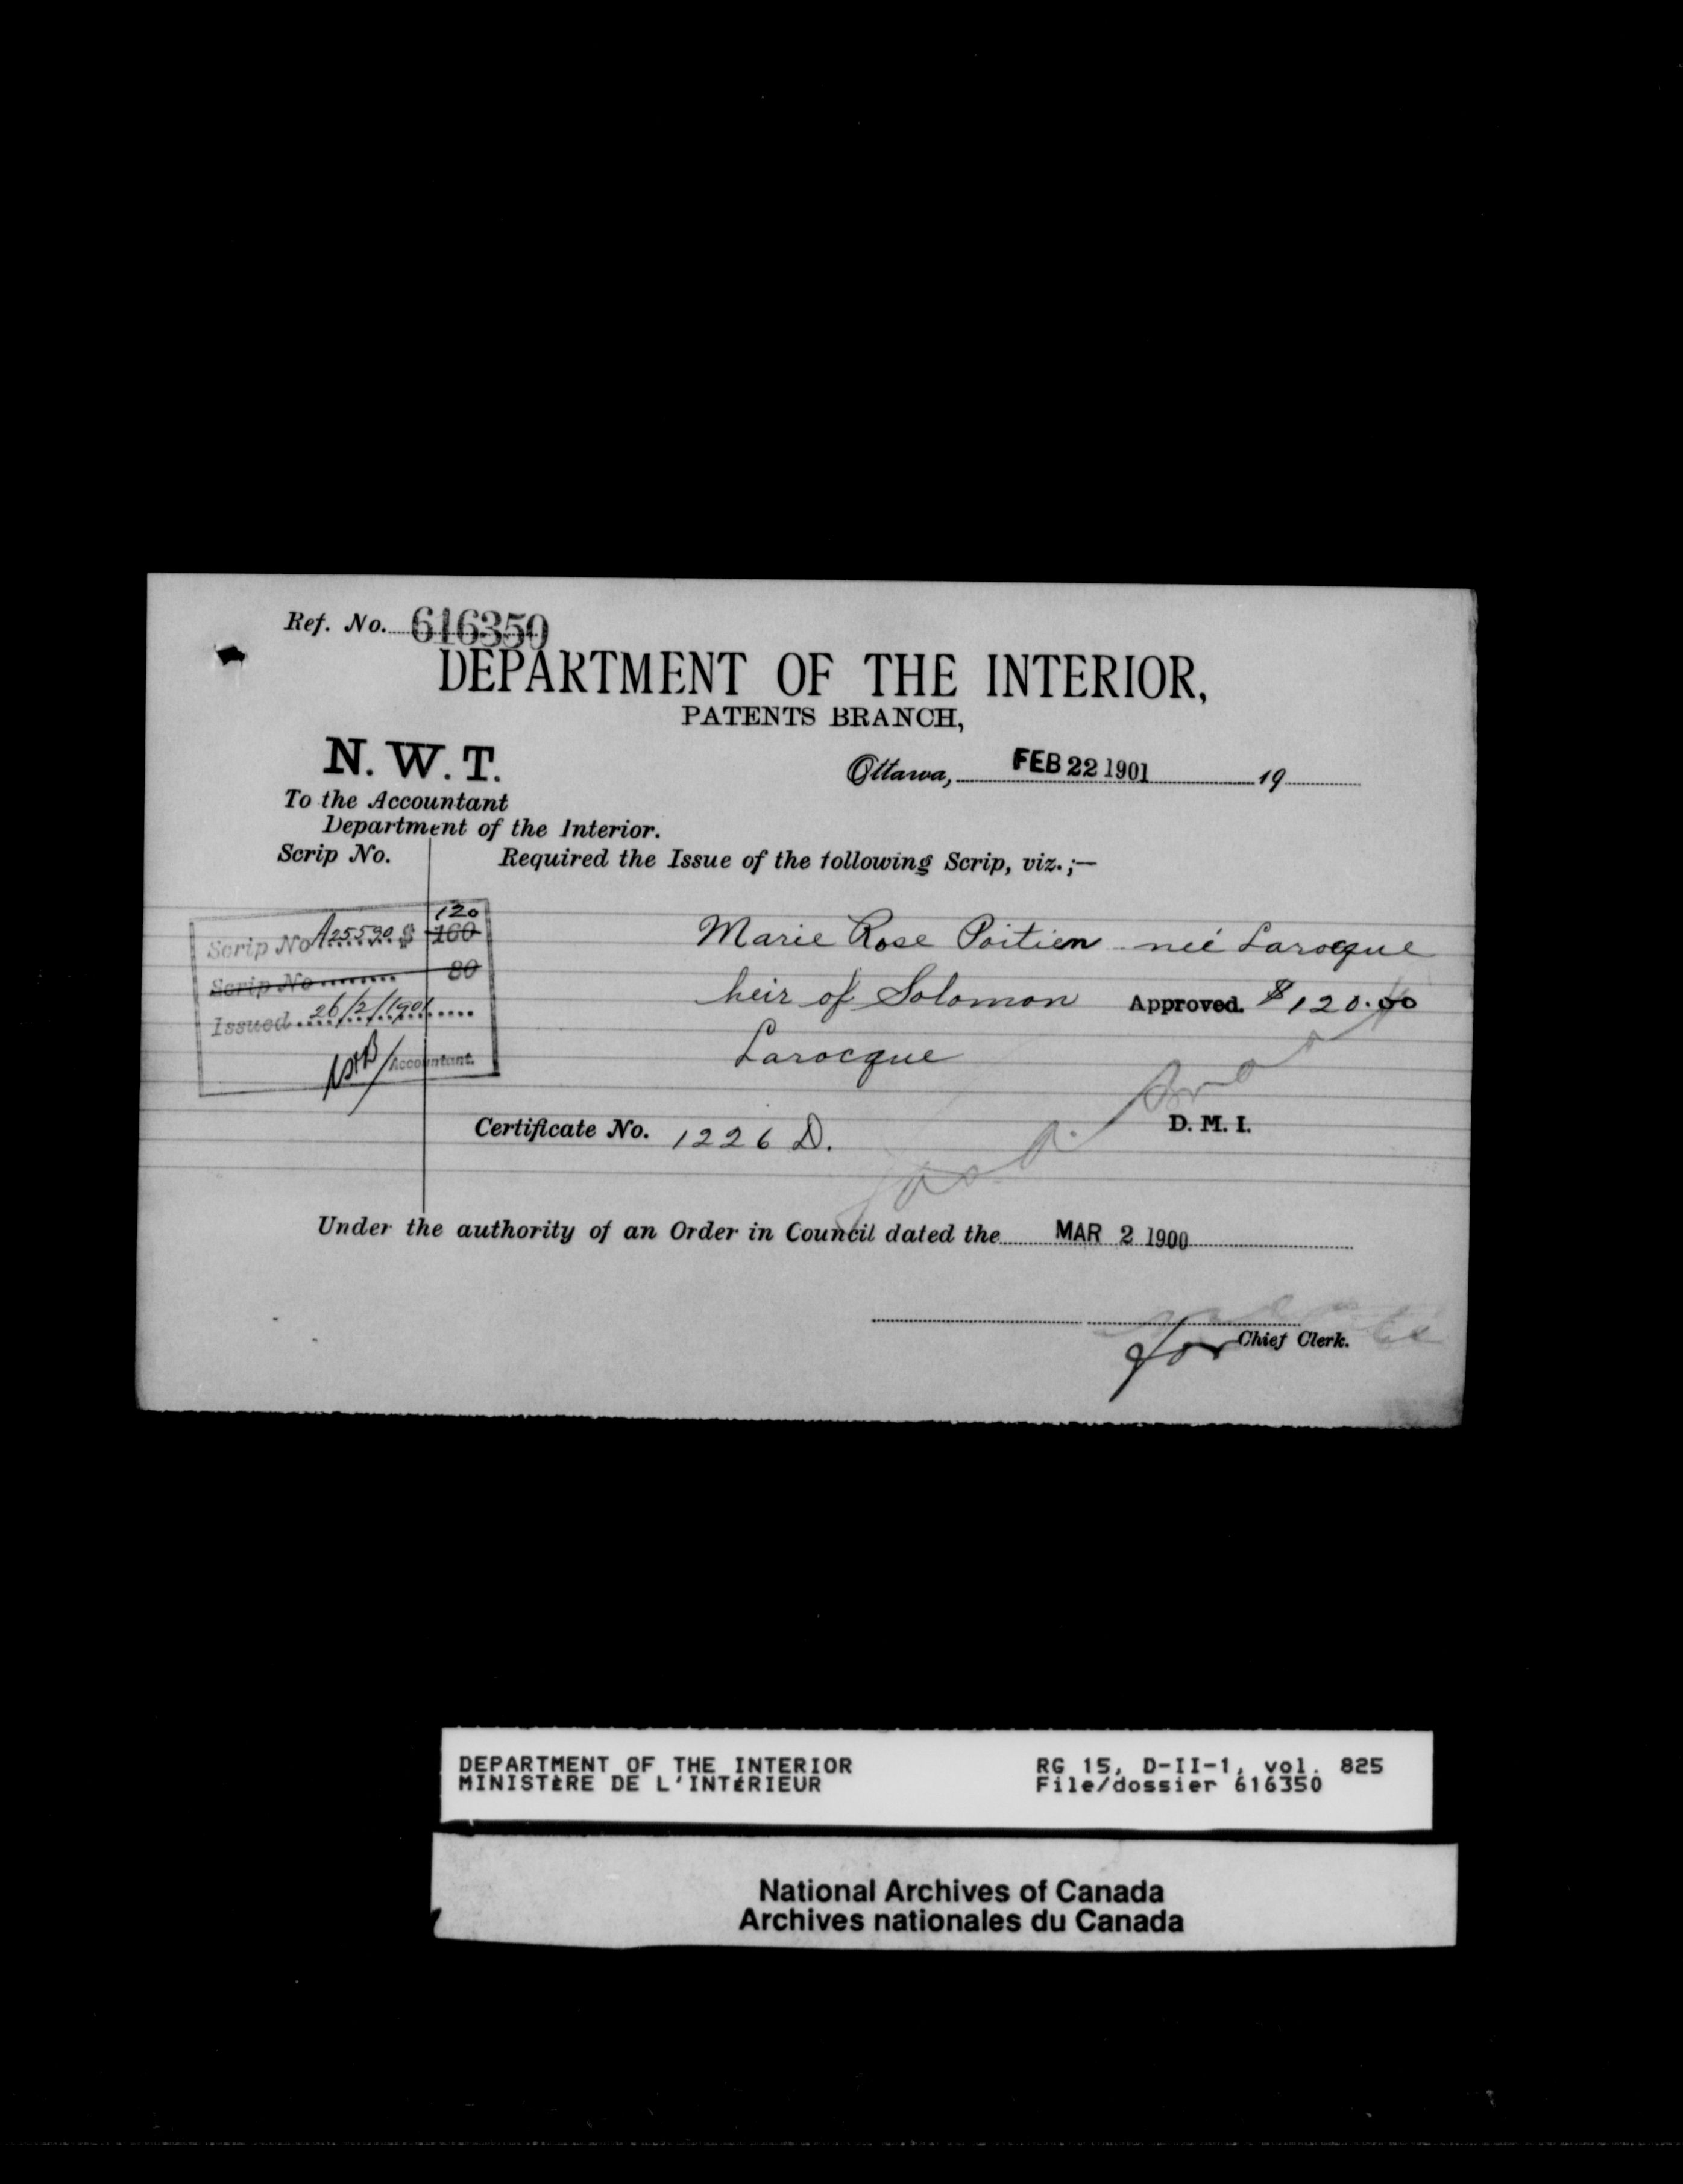 Ref. No. 616350
DEPARTMENT OF THE INTERIOR,
PATENTS BRANCH,
N. W. T.
Ottawa, FEB 22 1901 19
To the Accountant
Department of the Interior.
Scrip No.
Required the Issue of the following Scrip, viz.;—
120
Scrip No A25590 $ 160
Scrip No 80
Issued 26/2/1901
Accountant.
Marie Rose Poitien neé Larocque
heir of Solomon Approved. $120.00
Larocque
D. M. I.
Certificate No. 1226 D.
Under the authority of an Order in Council dated the MAR 2 1900
for Chief Clerk.
DEPARTMENT OF THE INTERIOR RG 15, D-II-1, vol. 825
MINISTÈRE DE L'INTÉRIEUR File/dossier 616350
National Archives of Canada
Archives nationales du Canada